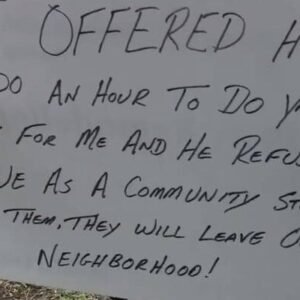 OFFERED
AN HOUR TO DO
FOR ME AND HE
AS A COMMUNITY
THEM, THEY WILL LEAVE
NEIGHBORHOOD!